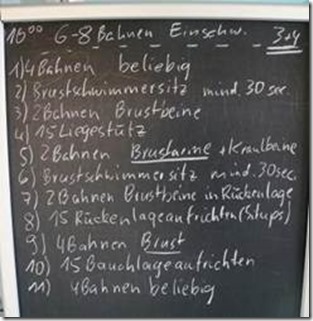 16⁰⁰ 6-8 Bahnen Einschw. 3+4
1) 4 Bahnen beliebig
2) Brustschwimmersitz mind. 30 sec.
3) 2 Bahnen Brustbeine
4) 15 Liegestütz
5) 2 Bahnen Brustarme + Kraulbeine
6) Brustschwimmersitz mind. 30 sec.
7) 2 Bahnen Brustbeine in Rückenlage
8) 15 Rückenlageaufrichten (Situps)
9) 4 Bahnen Brust
10) 15 Bauchlageaufrichten
11) 4 Bahnen beliebig